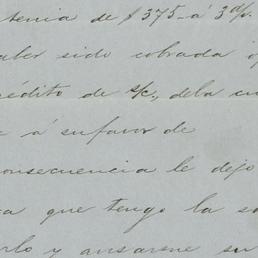 tenia de $375- á 3 d/v.
aber sido cobrada
rédito de s/c., deba
á su favor de
onsecuencia le dejo
que tengo la
y avisarme su